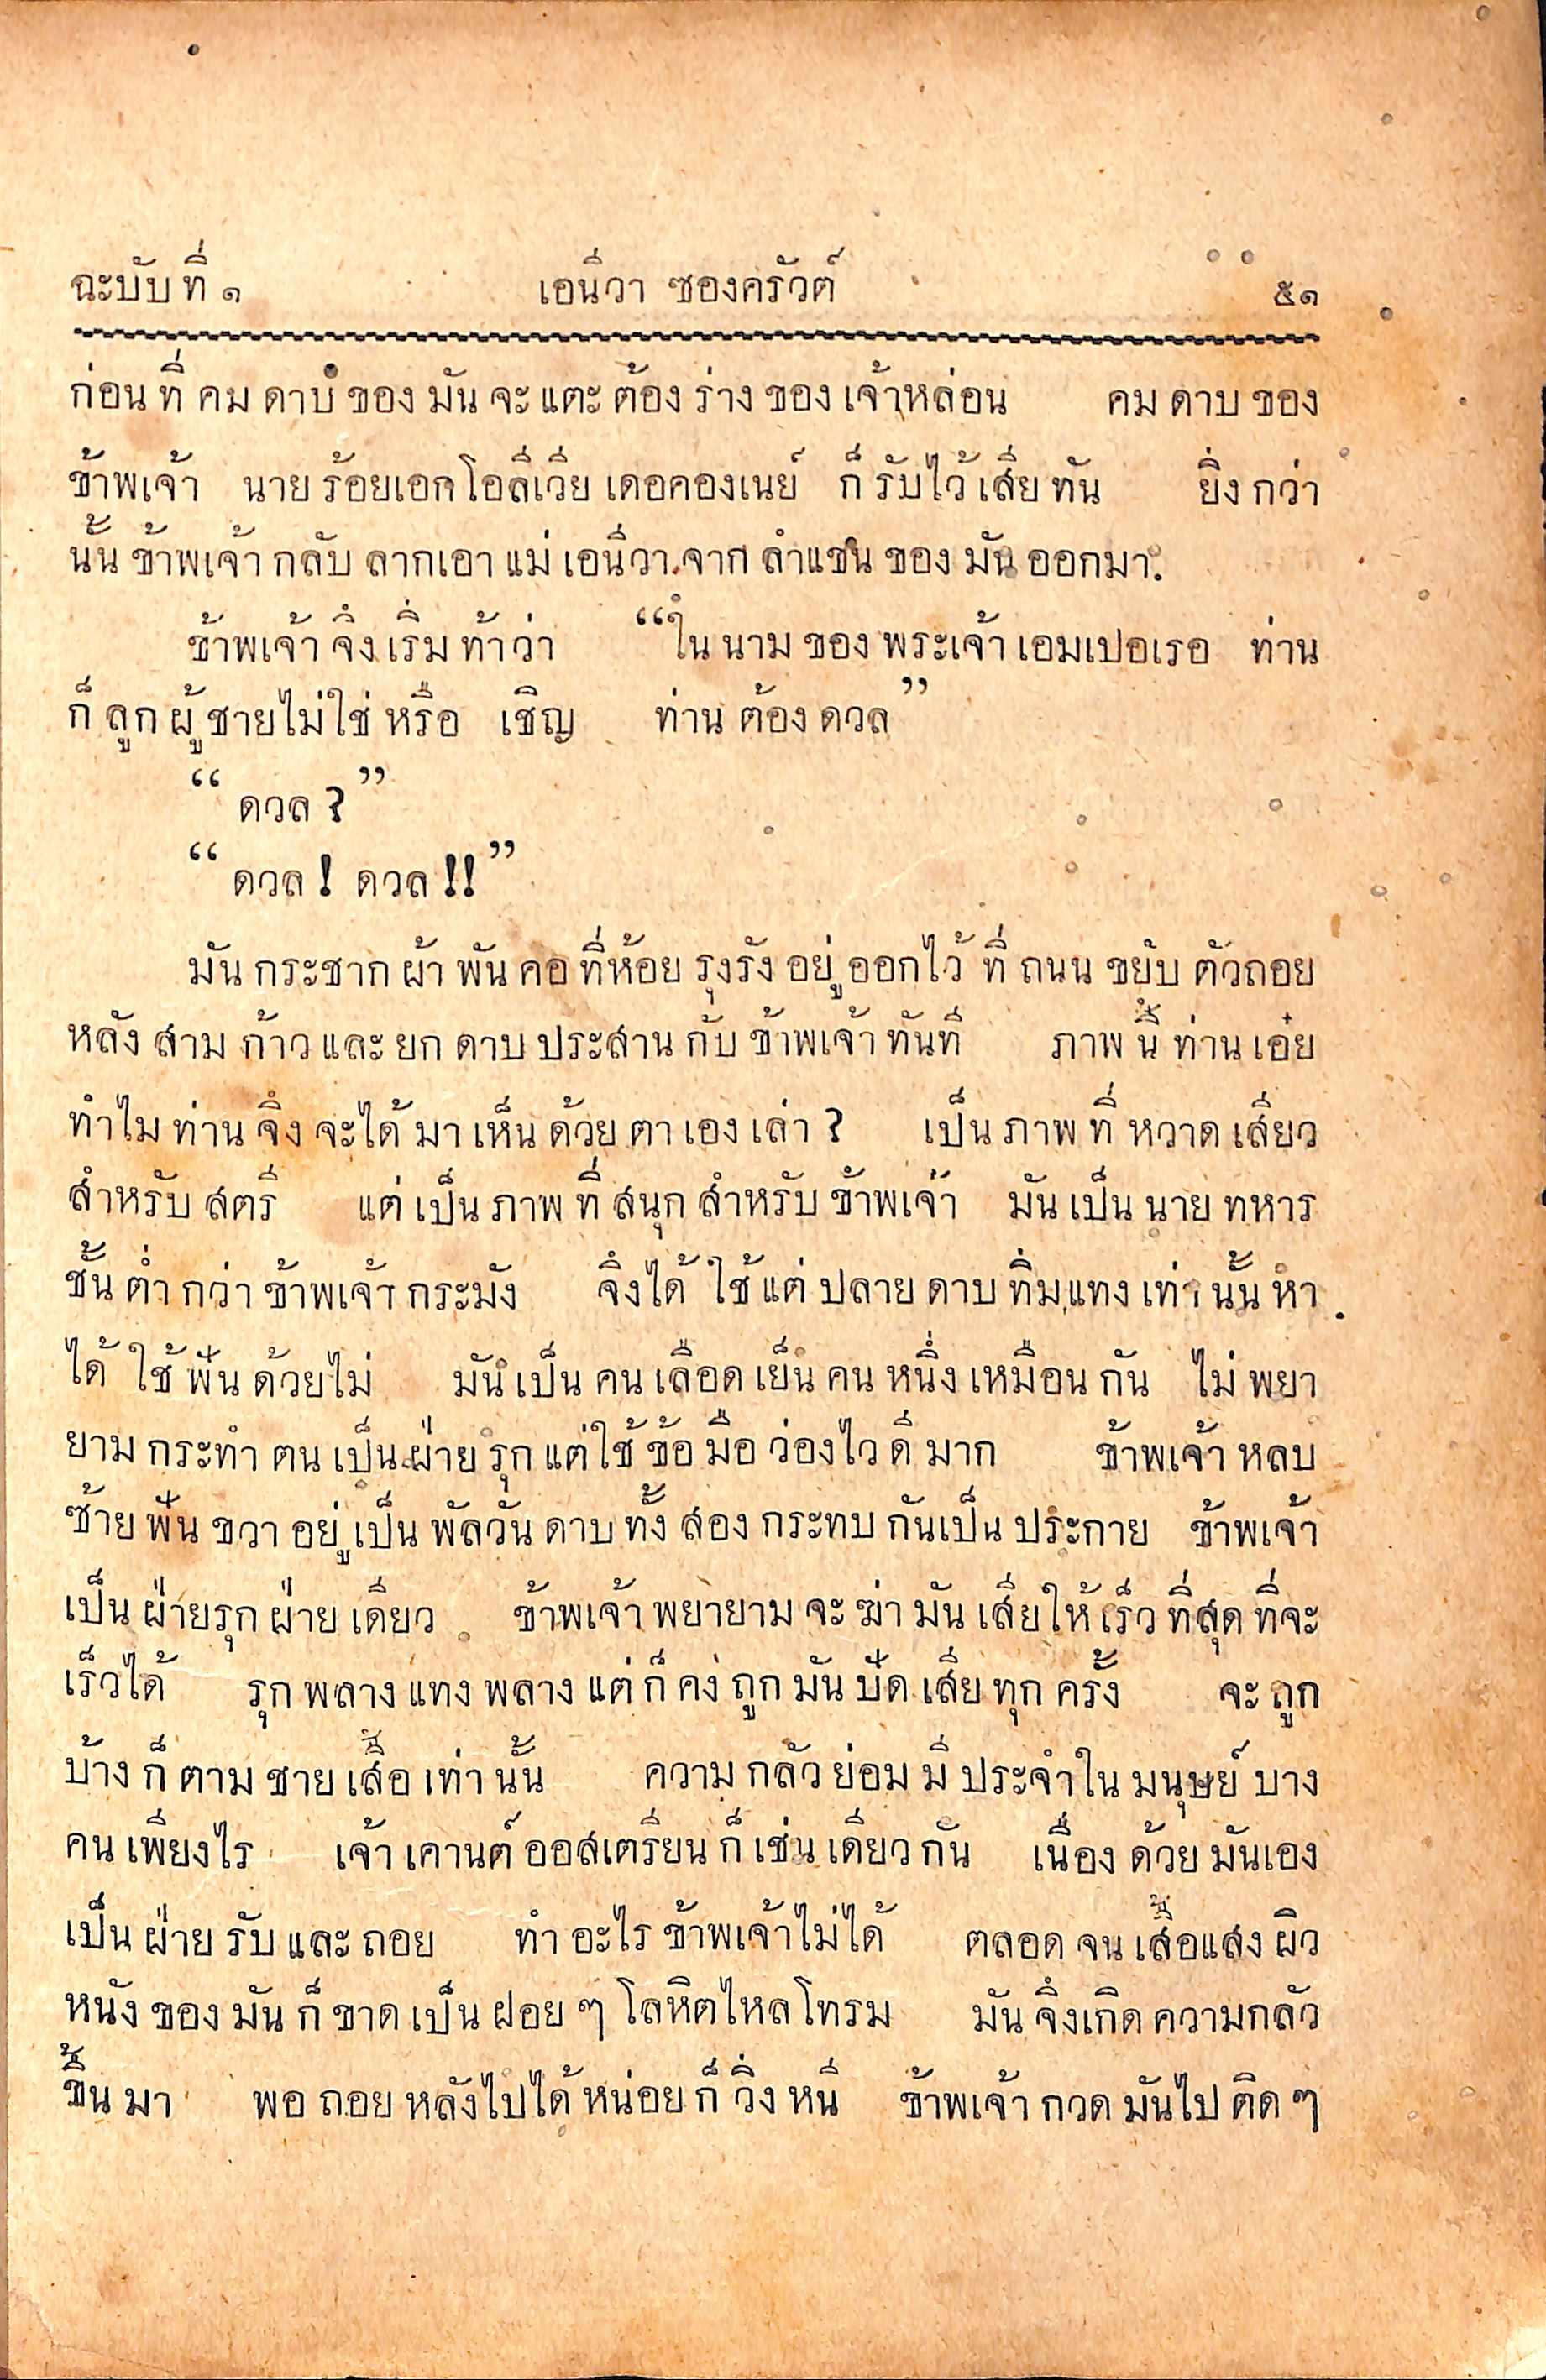 ฉะบับที่ ๑ เอนีวา ซองครัวต์ ๕๑
ก่อนที่คมดาบของมันจะแตะต้องร่างของเจ้าหล่อน คมดาบของ
ข้าพเจ้า นายร้อยเอกโอลีเวีย เดอคองเนย์ ก็รับไว้เสียทัน ยิ่งกว่า
นั้นข้าพเจ้ากลับลากเอาแม่เอนีวาจากลำแขนของมันออกมา.
ข้าพเจ้าจึงเริ่มท้าว่า “ในนามของพระเจ้าเอมเปอเรอ ท่าน
ก็ลูกผู้ชายไม่ใช่หรือ เชิญ ท่านต้องดวล”
“ดวล?”
“ดวล! ดวล!!”
มันกระชากผ้าพันคอที่ห้อยรุงรังอยู่ออกไว้ที่ถนนขยับตัวถอย
หลังสามก้าวและยกดาบประสานกับข้าพเจ้าทันที ภาพนี้ท่านเอ๋ย
ทำไมท่านจึงจะได้มาเห็นด้วยตาเองเล่า? เป็นภาพที่หวาดเสียว
สำหรับสตรี แต่เป็นภาพที่สนุกสำหรับข้าพเจ้า มันเป็นนายทหาร
ชั้นต่ำกว่าข้าพเจ้ากระมัง จึงได้ใช้แต่ปลายดาบทิ่มแทงเท่านั้นหา
ได้ใช้ฟันด้วยไม่ มันเป็นคนเลือดเย็นคนหนึ่งเหมือนกัน ไม่พยา
ยามกระทำตนเป็นฝ่ายรุกแต่ใช้ข้อมือว่องไวดีมาก ข้าพเจ้าหลบ
ซ้ายฟันขวาอยู่เป็นพัลวันดาบทั้งสองกระทบกันเป็นประกาย ข้าพเจ้า
เป็นฝ่ายรุกฝ่ายเดียว ข้าพเจ้าพยายามจะฆ่ามันเสียให้เร็วที่สุดที่จะ
เร็วได้ รุกพลางแทงพลางแต่ก็คงถูกมันปัดเสียทุกครั้ง จะถูก
บ้างก็ตามชายเสื้อเท่านั้น ความกลัวย่อมมีประจำในมนุษย์บาง
คนเพียงไร เจ้าเคานต์ออสเตรียนก็เช่นเดียวกัน เนื่องด้วยมันเอง
เป็นฝ่ายรับและถอย ทำอะไรข้าพเจ้าไม่ได้ ตลอดจนเสื้อแสงผิว
หนังของมันก็ขาดเป็นฝอยๆโลหิตไหลโทรม มันจึงเกิดความกลัว
ขึ้นมา พอถอยหลังไปได้หน่อยก็วิ่งหนี ข้าพเจ้ากวดมันไปติดๆ